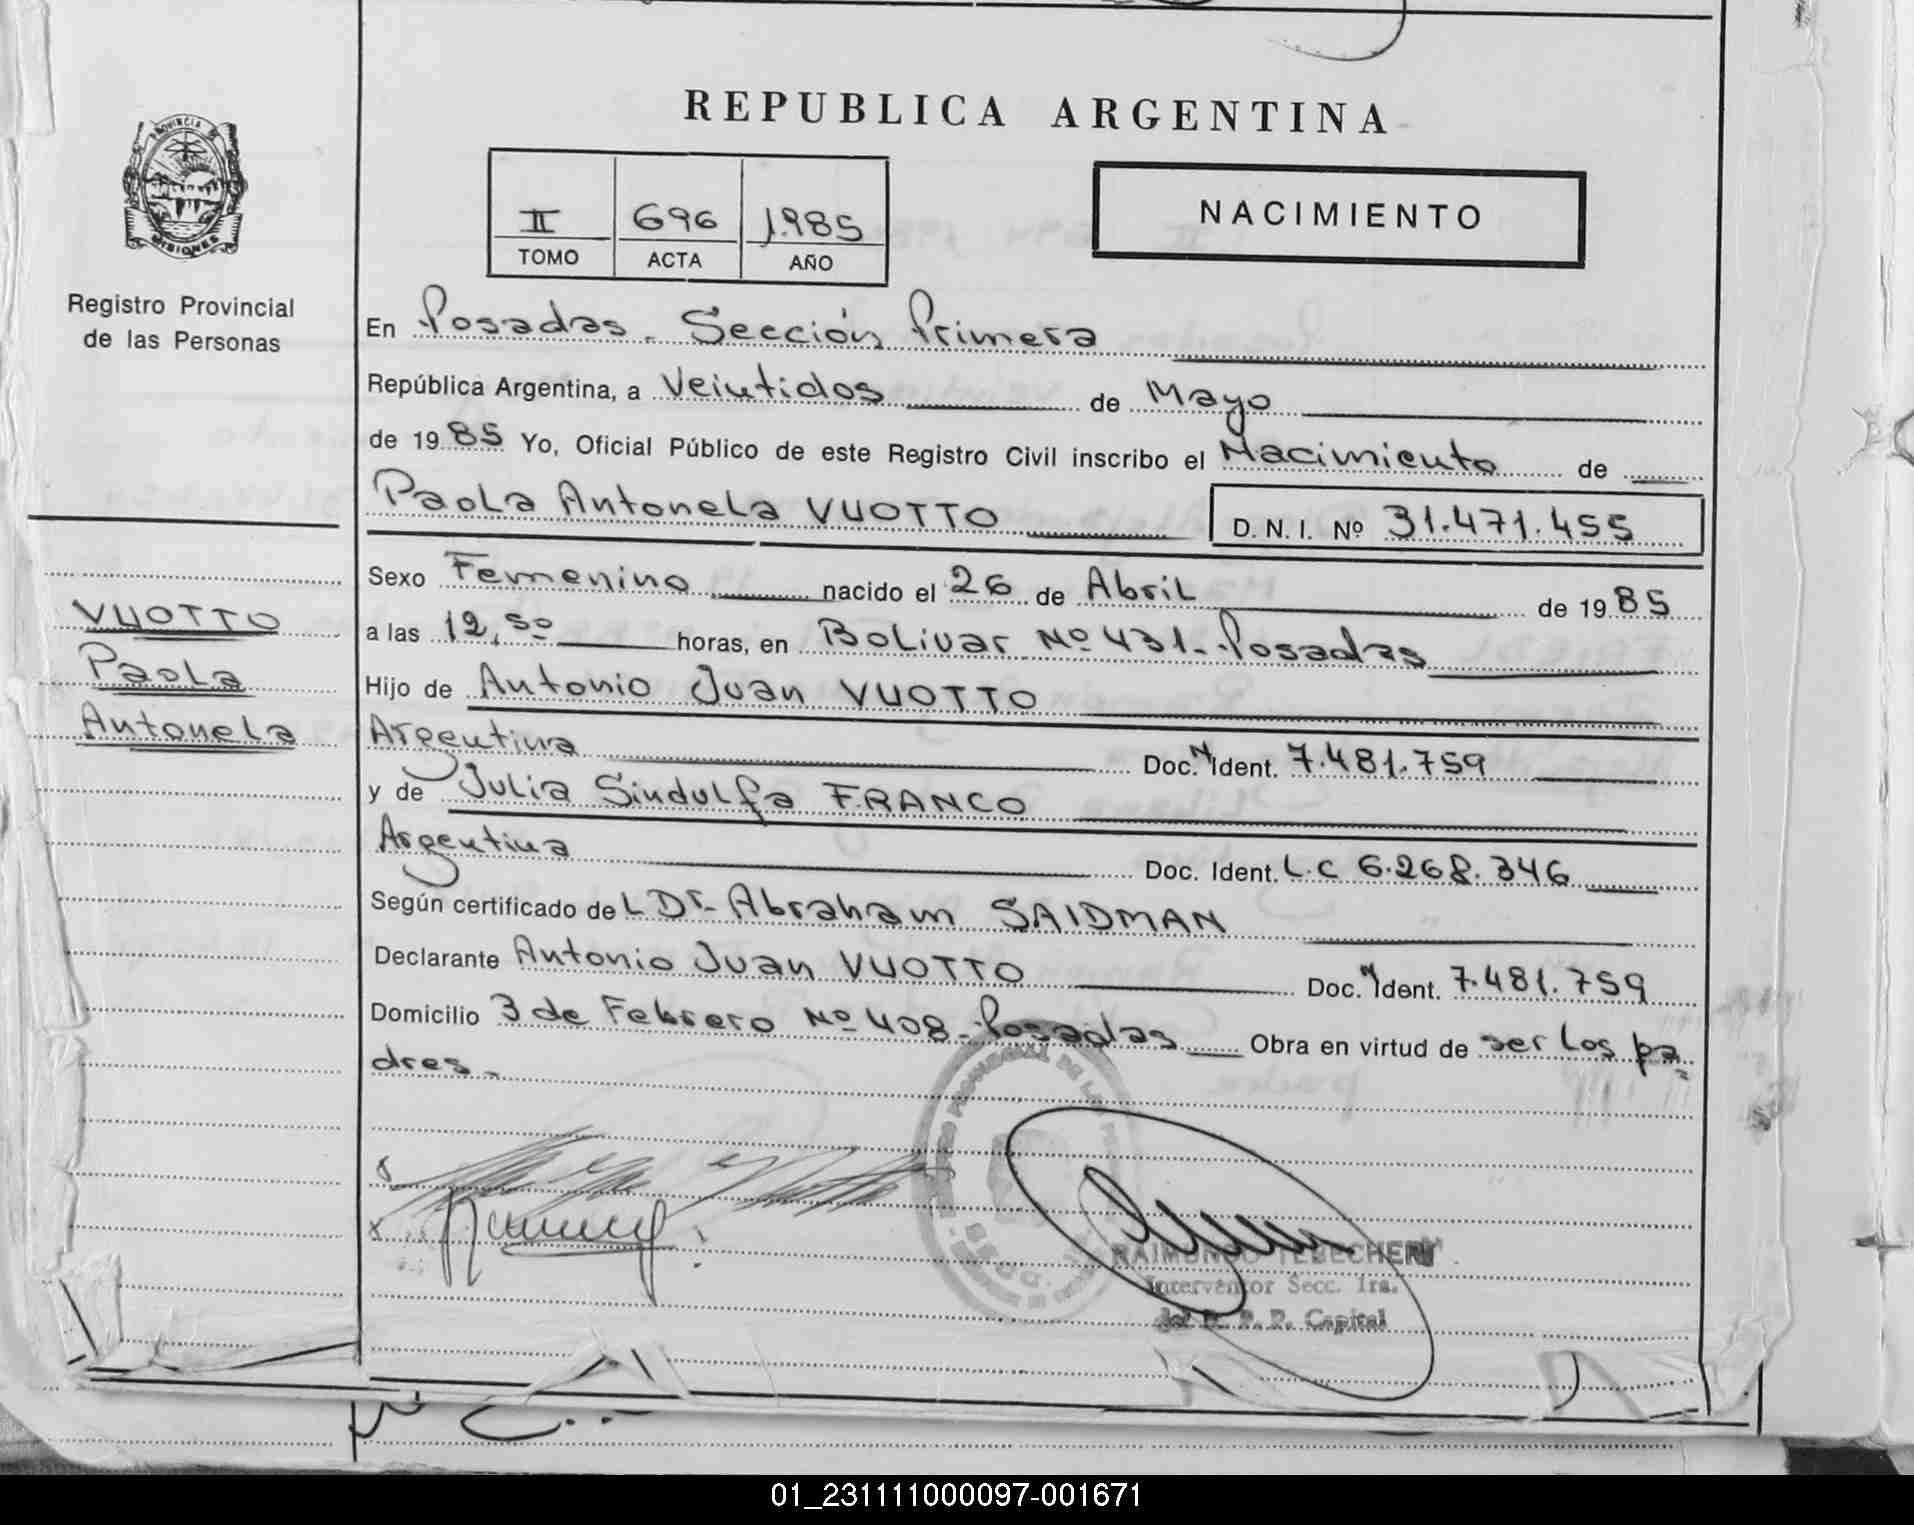 REPUBLICA ARGENTINA
PROVINCIA DE
MISIONES
Registro Provincial
de las Personas
II 696 1.985
TOMO ACTA AÑO
NACIMIENTO
En Posadas. Sección Primera
República Argentina, a Veintidos de Mayo
de 1985 Yo, Oficial Público de este Registro Civil inscribo el Nacimiento de
Paola Antonela VUOTTO D. N. I. Nº 31.471.455
VUOTTO
Paola
Antonela
Sexo Femenino nacido el 26 de Abril de 1985
a las 12,50 horas, en Bolivar Nº 431 - Posadas
Hijo de Antonio Juan VUOTTO
Argentina Doc. Ident. 7.481.759
y de Julia Sindulfa FRANCO
Argentina Doc. Ident. L.C 6.268.346
Según certificado del Dr. Abraham SAIDMAN
Declarante Antonio Juan VUOTTO Doc. Ident. 7.481.759
Domicilio 3 de Febrero Nº 408 - Posadas Obra en virtud de ser los pa=
dres.-
RAIMUNDO TEBECHERI
Interventor Secc. 1ra.
del R. P. P. Capital
01_231111000097-001671